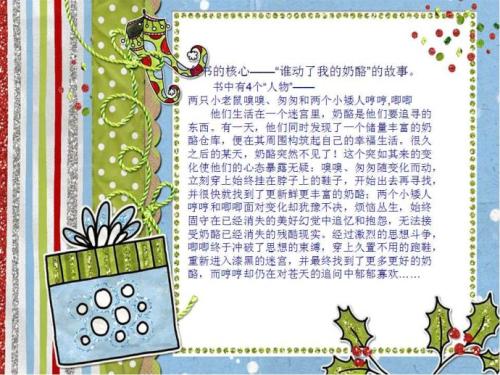 书的核心——“谁动了我的奶酪”的故事。
书中有4个“人物”——
两只小老鼠嗅嗅、匆匆和两个小矮人哼哼,唧唧
他们生活在一个迷宫里，奶酪是他们要追寻的
东西。有一天，他们同时发现了一个储量丰富的奶
酪仓库，便在其周围构筑起自己的幸福生活。很久
之后的某天，奶酪突然不见了！这个突如其来的变
化使他们的心态暴露无疑：嗅嗅、匆匆随变化而动，
立刻穿上始终挂在脖子上的鞋子，开始出去再寻找，
并很快就找到了更新鲜更丰富的奶酪；两个小矮人
哼哼和唧唧面对变化却犹豫不决，烦恼丛生，始终
固守在已经消失的美好幻觉中追忆和抱怨，无法接
受奶酪已经消失的残酷现实。经过激烈的思想斗争，
唧唧终于冲破了思想的束缚，穿上久置不用的跑鞋，
重新进入漆黑的迷宫，并最终找到了更多更好的奶
酪，而哼哼却仍在对苍天的追问中郁郁寡欢……